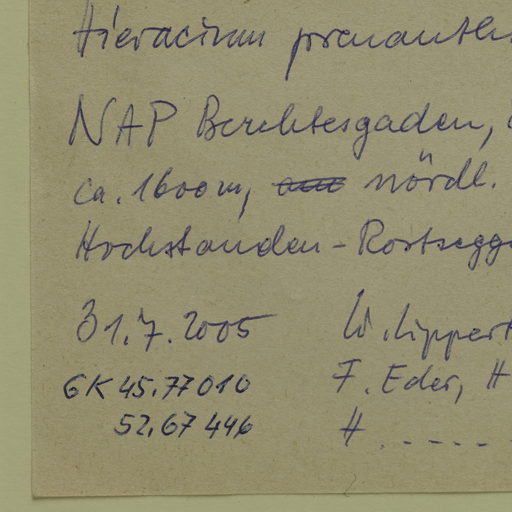 Hieracium prenanth
NAP Berchtesgaden,
ca. 1600 m, nördl.
Hochstauden-Rostsegg
31.7.2005 W. Lippert
GK 45.77010 F. Eder, H
52.67446 H. - - - -